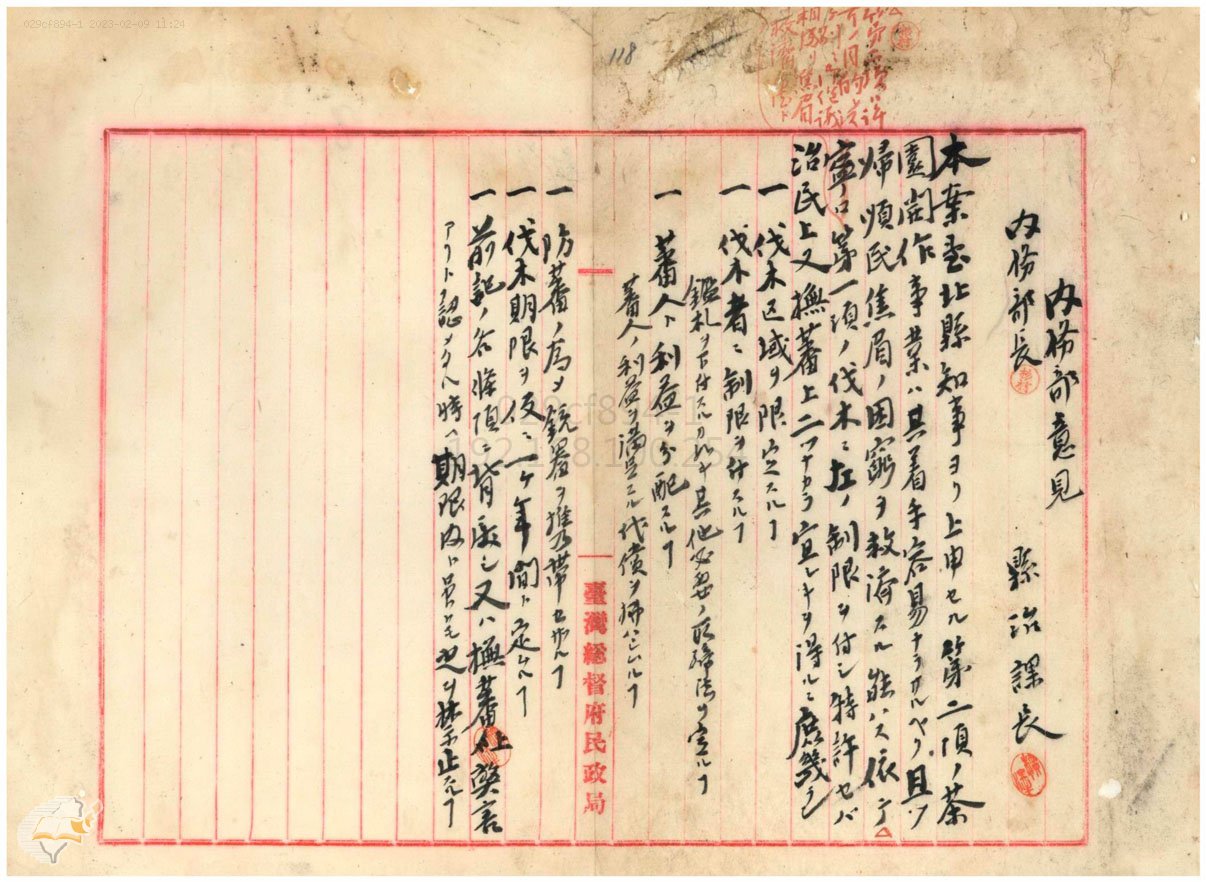 029cf894-1 2023-02-09 11:24
118
内務部意見
縣治課長
内務部長
本案臺北縣知事ヨリ上申セル第二項ノ茶
園開作事業ハ其着手容易ナラサルヘク且ツ
帰順民焦眉ノ困窮ヲ救済スル能ハス依テ
寧ロ第一項ノ伐木ニ左ノ制限ヲ付シ特許セバ
治民上又撫蕃上二ツナカラ宜シキヲ得ルニ庶幾シ
一 伐木区域ヲ限定スルヿ
一 伐木者ニ制限ヲ付スルヿ
鑑札ヲ下付スルカ如キ其他必要ノ取締法ヲ定ルヿ
一 蕃人ト利益ヲ分配スルヿ
蕃人ノ利益ヲ満足スル代償ヲ拂ハシムルヿ
一 防蕃ノ為メ銃器ヲ携帯セサルヿ
一 伐木期限ヲ仮ニ一ケ年間ト定ムルヿ
一 前記ノ各條項ニ背戻シ又ハ撫蕃上弊害
アリト認メタル時ハ期限内ト雖トモ之ヲ禁止スルヿ
臺灣総督府民政局
029cf894-1
192.168.100.254